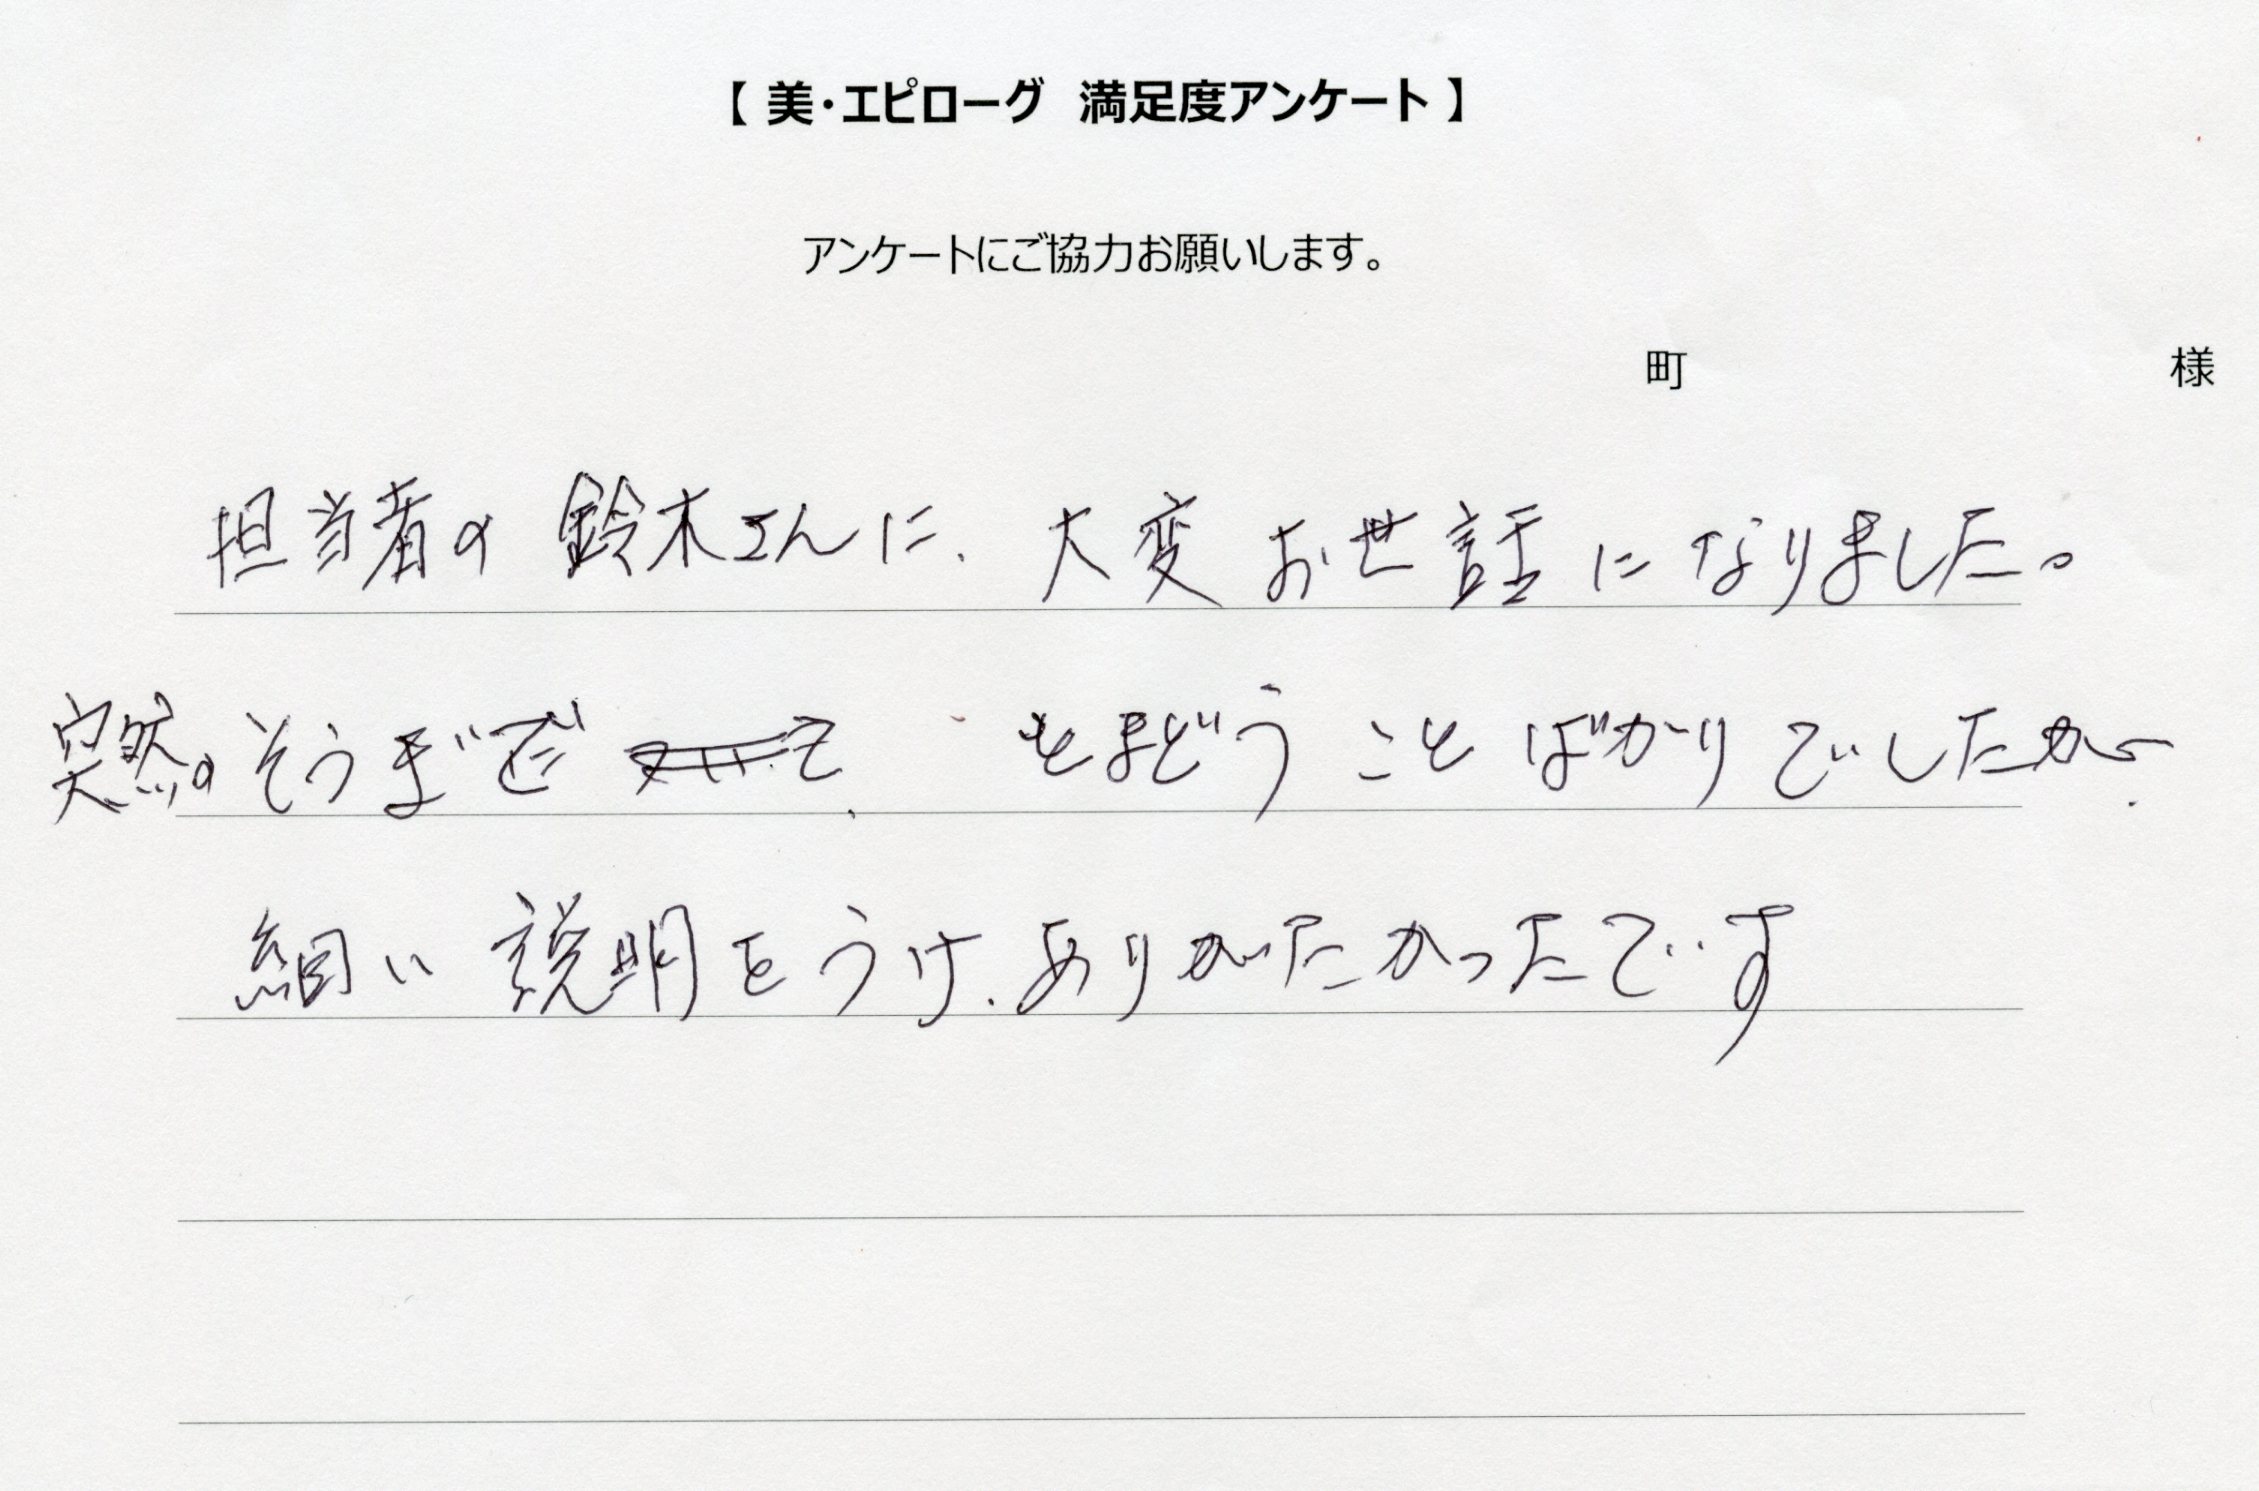 【 美・エピローグ 満足度アンケート 】
アンケートにご協力お願いします。
町 様
担当者の 鈴木さんに、大変お世話になりました。
突然のそうぎで、とまどうことばかりでしたが、
細い説明をうけ、ありがたかったです